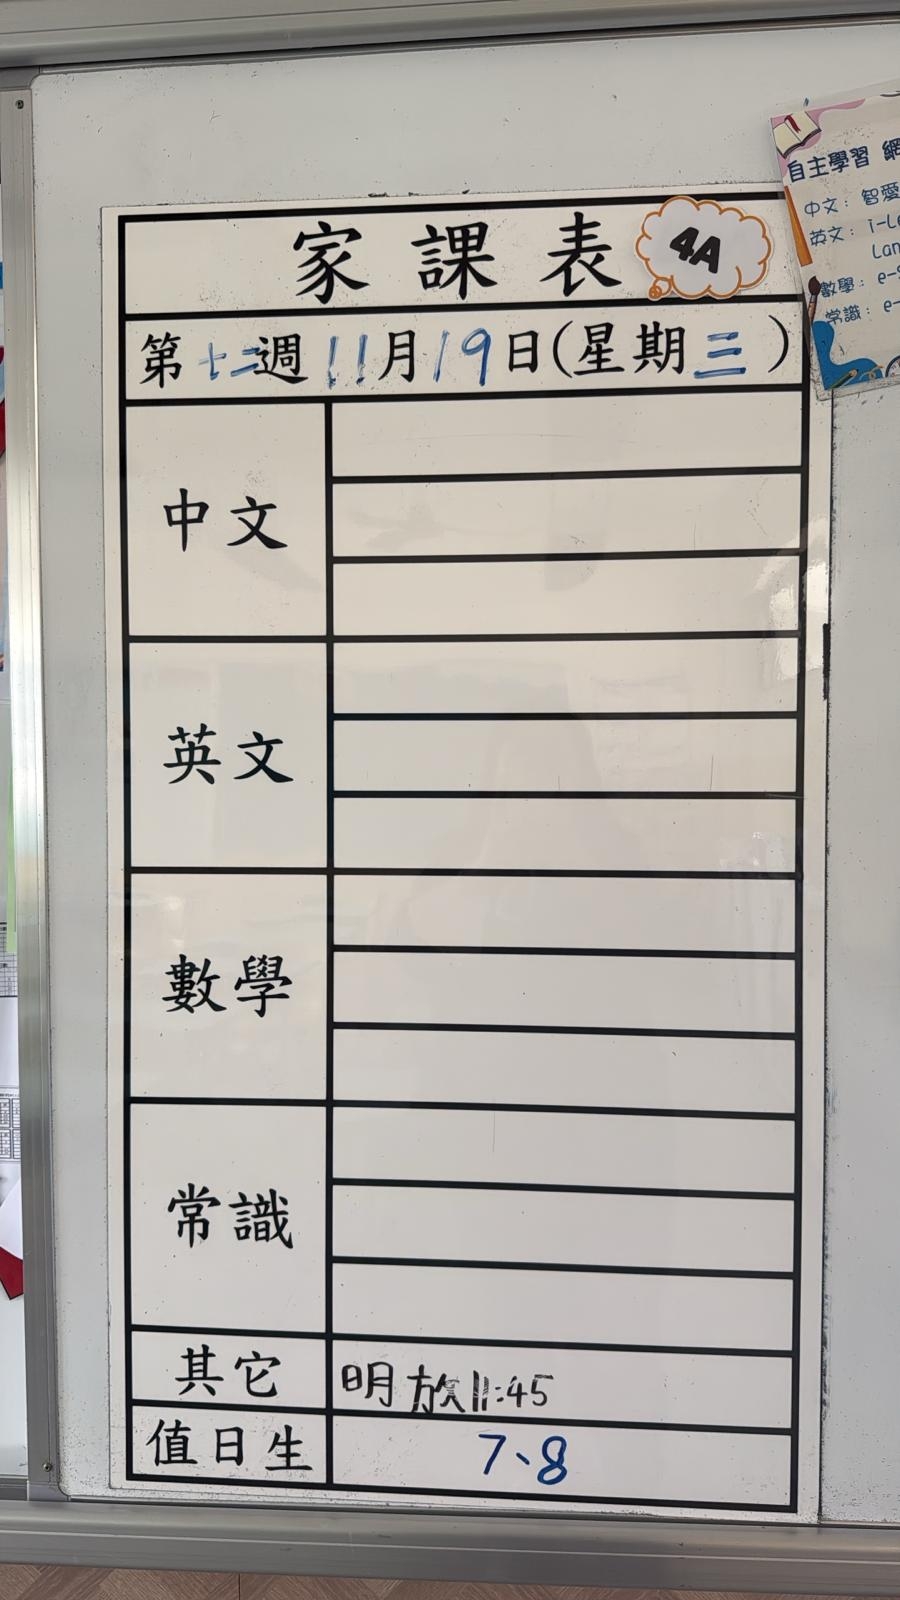 家課表 4A
第十二週 11月19日(星期三)
中文
英文
數學
常識
其它 明放11:45
值日生 7、8
自主學習
中文：智愛
英文：i-Le
Lan
數學：e-
常識：e-